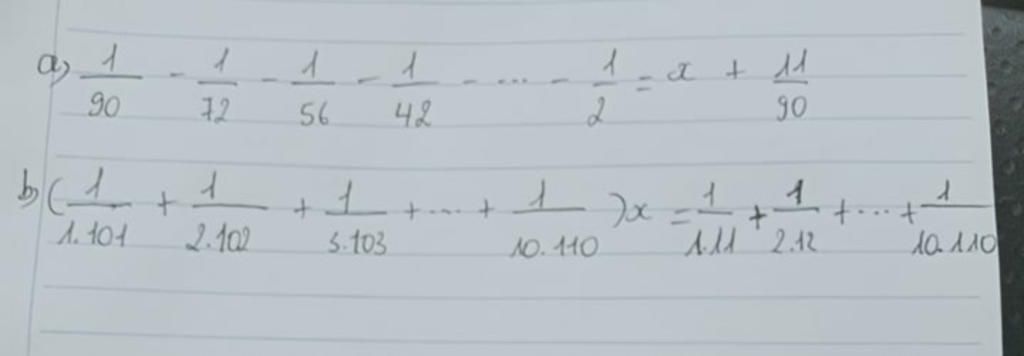 a) 1/90 - 1/72 - 1/56 - 1/42 - ... - 1/2 = x + 11/90
b) (1/1.101 + 1/2.102 + 1/3.103 + ... + 1/10.110)x = 1/1.11 + 1/2.12 + ... + 1/10.110